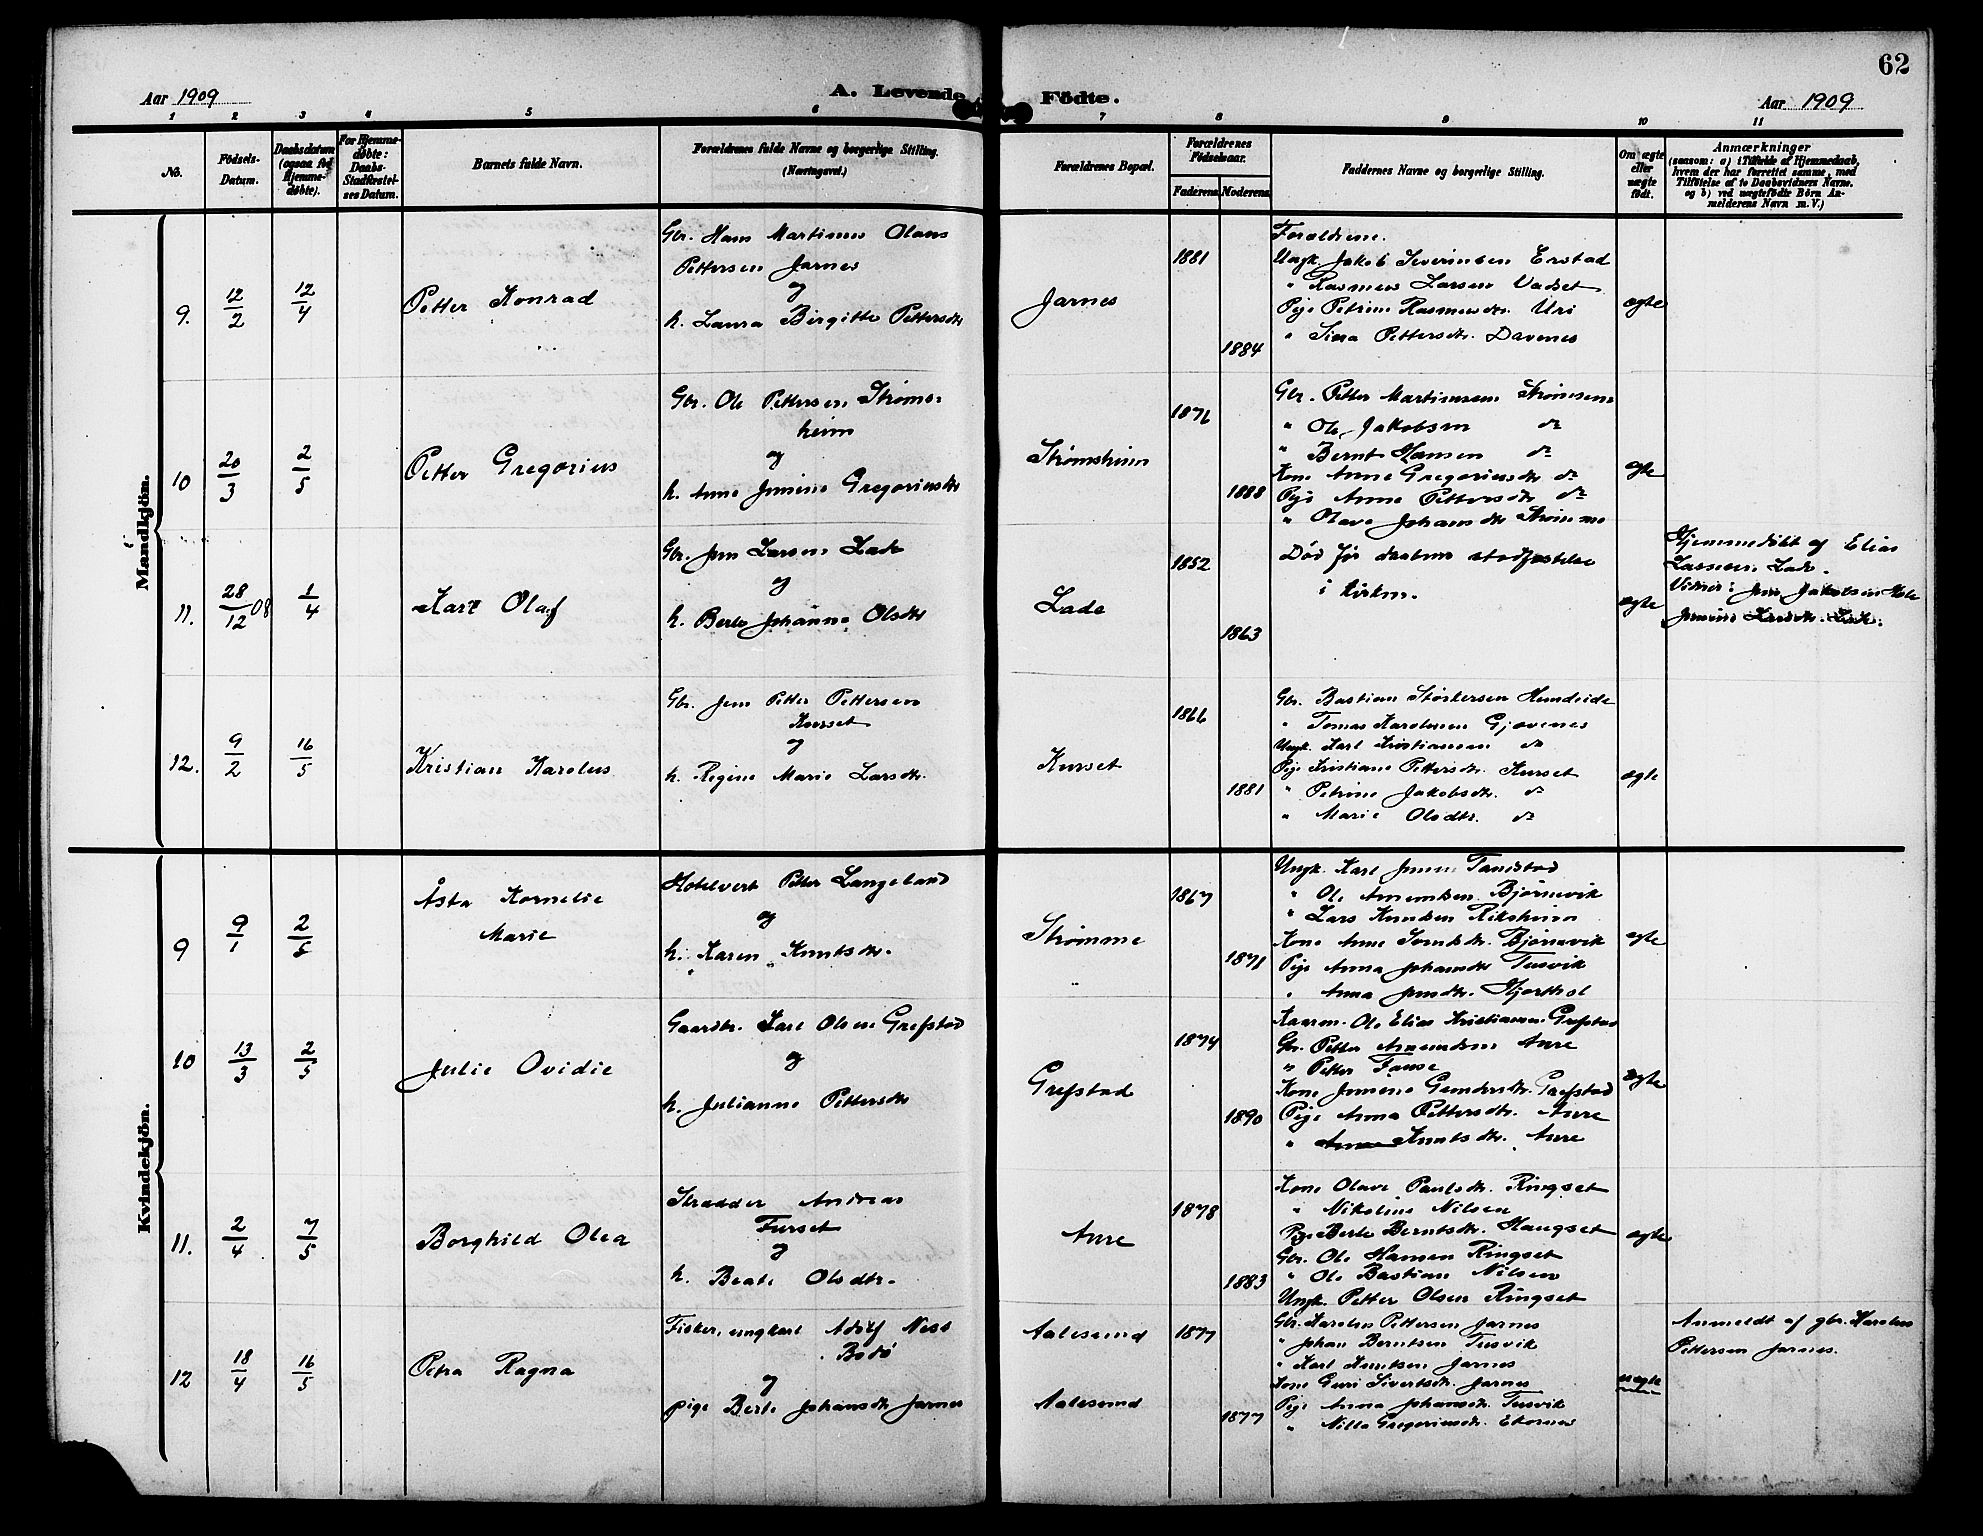 62
Aar 1909
A. Levende Födte.
Aar 1909
1 2 3 4 5 6 7 8 9 10 11
No.
Födsels-Datum.
Daabsdatum (ogsaa for Hjemmedöbte).
For Hjemmedöbte: Daabs-Stadfæstelses Datum.
Barnets fulde Navn.
Forældrenes fulde Navne og borgerlige Stilling.
(Næringsvei.)
Forældrenes Bopæl.
Forældrenes Födselsaar.
Faderens. Moderens.
Faddernes Navne og borgerlige Stilling.
Om ægte eller uægte födt.
Anmærkninger
(saasom: a) i Tilfælde af Hjemmedaab,
hvem der har forrettet samme, med
Tilföielse af to Daabsvidners Navne,
og b) ved uægtefödte Börn Anmelderens Navn m. V.)
Mandkjön.
9. 12/2 12/4 Petter Konrad
Gbr. Hans Martinus Olaus
Pettersen Jarnes
og
h. Laura Birgitte Pettersdtr
Jarnes
1881
1884
Forældrene.
Ungk. Jakob Severinsen Erstad
" Rasmus Larsen Vadset
Pige Petrine Rasmusdtr. Uri
" Sina Pettersdtr. Davenes
ægte
10 20/3 2/5 Petter Gregorius
Gbr. Ole Pettersen Strøms-
heim
og
h. Anne Jensine Gregoriusdtr
Strømsheim
1876
1888
Gbr. Petter Martinusen Strømsem
" Ole Jakobsen do
" Bernt Hansen do
Kone Anne Gregoriusdtr do
Pige Anne Pettersdtr do
" Olave Johansdtr Strømme
ægte
11. 28/12 08 1/4 Karl Olaf
Gbr. Jens Larsen Lade
og
h. Berte Johanne Olsdtr
Lade
1852
1863
Død før daabens stadfæstelse
i kirken.
ægte
Hjemmedøbt af Elias
Larsen Lade.
Vidner: Jens Jakobsen Hole
Jensine Larsdtr. Lade.
12. 9/2 16/5 Kristian Karolus
Gbr. Jens Petter Pettersen
Kurset
og
h. Regine Marie Larsdtr.
Kurset
1866
1881
Gbr. Bastian Størkersen Hundeide
" Tomas Karolusen Gjævenes
Ungk. Karl Kristiansen do
Pige Kristiane Pettersdtr. Kurset
" Petrine Jakobsdtr. do
" Marie Olsdtr. do
ægte
Kvindekjön.
9 9/1 2/5 Åsta Kornelie
Marie
Hotelvert Petter Langeland
og
h. Karen Knutsdtr.
Strømme
1867
1871
Ungk. Karl Jensen Tandstad
" Ole Amundsen Bjørnevik
" Lars Knudsen Riksheim
Kone Anne Ivardsdtr. Bjørnevik
Pige Anna Johansdtr Tusvik
" Anna Jensdtr. Hjorthol
ægte
10 13/3 2/5 Julie Ovidie
Gaardbr. Karl Olsen Grefstad
og
h. Julianne Pettersdtr
Grefstad
1874
1890
Kaarm. Ole Elias Kristiansen Grefstad
Gbr. Petter Amundsen Aure
" Petter Fause
Kone Jensine Gundersdtr. Grefstad
Pige Anna Pettersdtr. Aure
" Knutsdtr. Aure
ægte
11. 2/4 7/5 Borghild Olea
Skrædder Andreas
Furset
og
h. Beate Olsdtr.
Aure
1878
1883
Kone Olave Paulsdtr. Ringset
" Nikoline Nilsen
Pige Berte Berntsdtr. Haugset
Gbr. Ole Hansen Ringset
" Ole Bastian Nilsen
Ungk. Petter Olsen Ringset
ægte
12 18/4 16/5 Petra Ragna
Fisker, ungkarl Adolf Ness
Bodø
og
pige Berte Johansdtr Jarnes
Aalesund
Aalesund
1877
1877
Gbr. Karolus Pettersen Jarnes
" Johan Berntsen Tusvik
" Karl Knutsen Jarnes
Kone Guri Sivertsdtr. Jarnes
Pige Anna Johansdtr. Tusvik
" Nille Gregoriusdtr. Ekornes
uægte
Anmeldt af gbr. Karolus
Pettersen Jarnes.